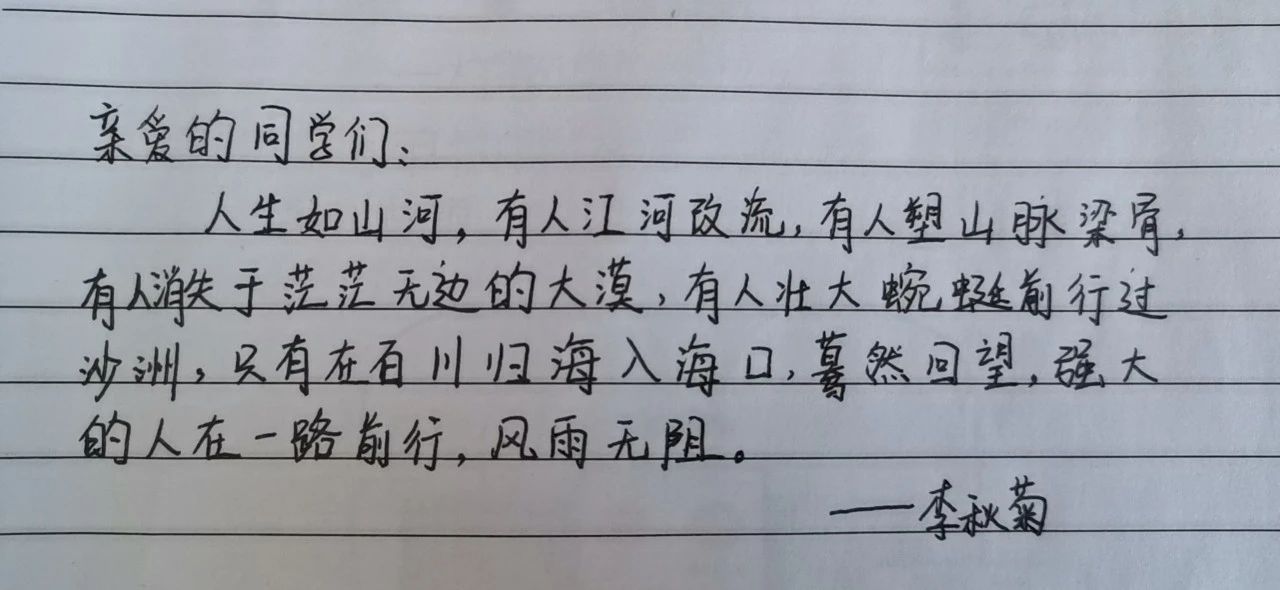 亲爱的同学们:
人生如山河,有人江河改流,有人塑山脉梁脊,
有人消失于茫茫无边的大漠,有人壮大蜿蜒前行过
沙洲,只有在百川归海入海口,蓦然回望,强大
的人在一路前行,风雨无阻。
——李秋菊